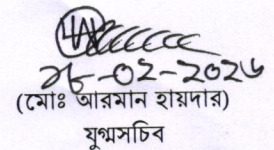 ২৮-০২-২০২৬
(মোঃ আরমান হায়দার)
যুগ্মসচিব